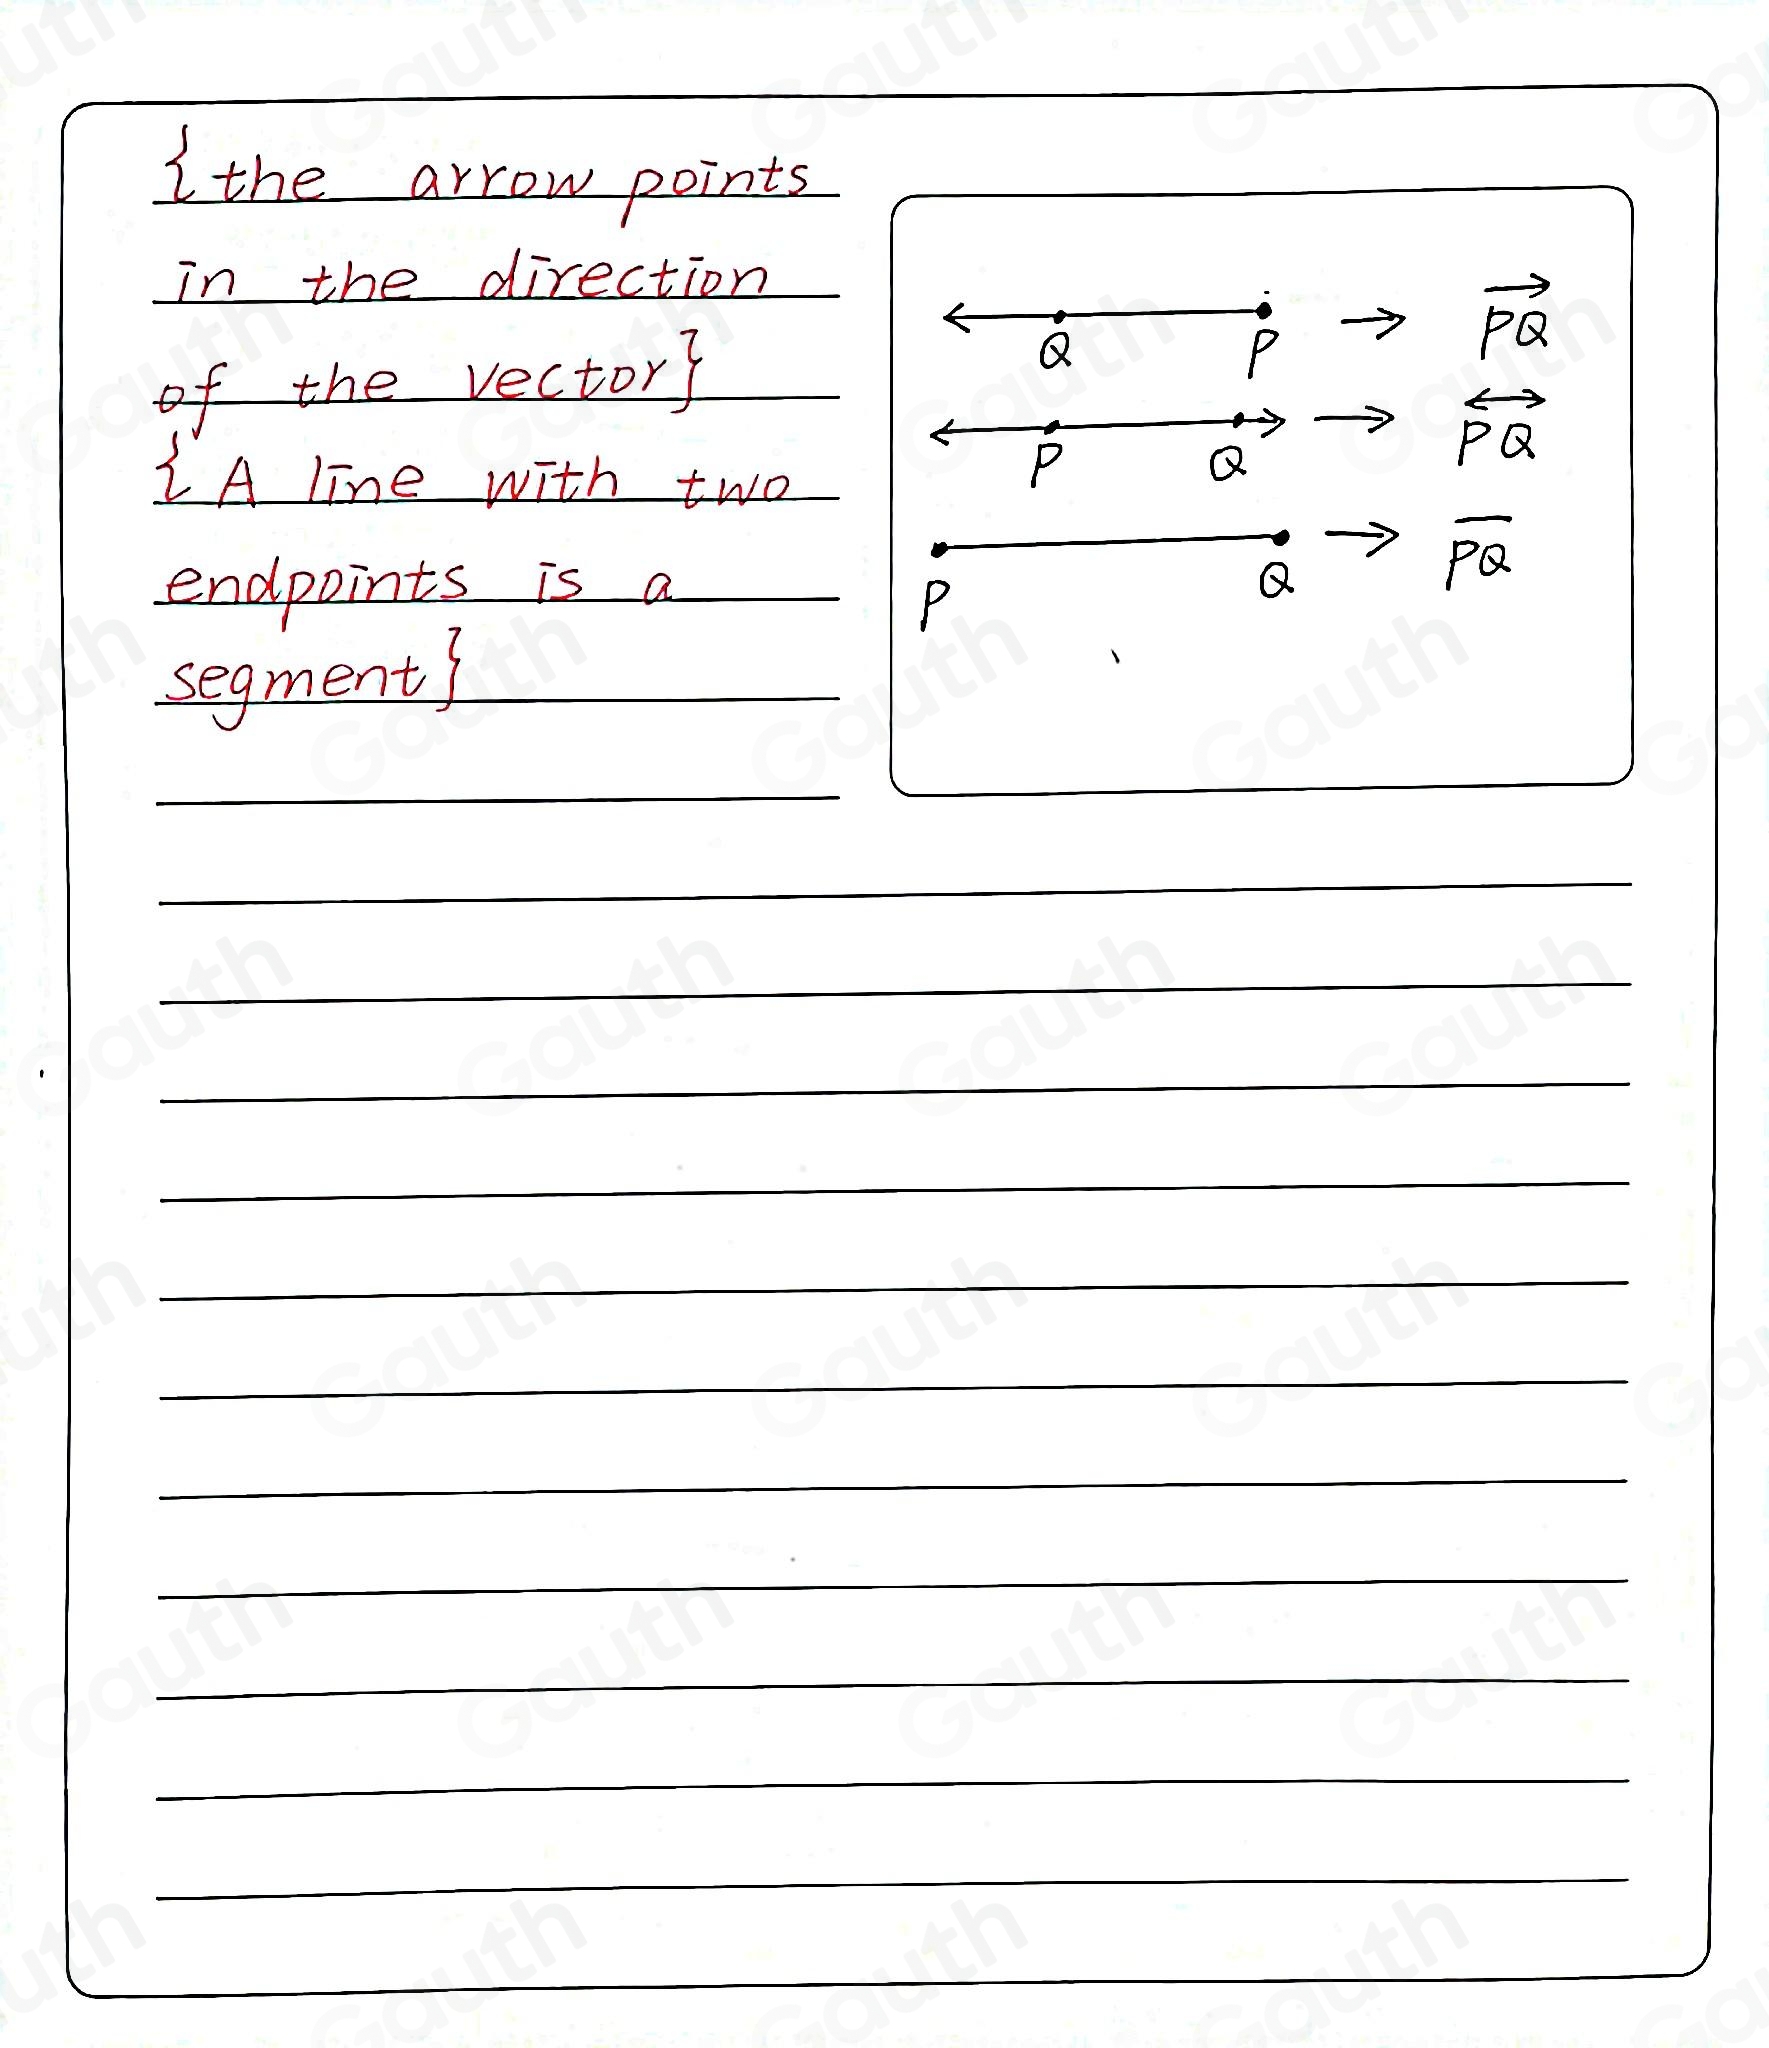 {the arrow points
in the direction
of the vector}
{A line with two
endpoints is a
segment}
Q P → \overrightarrow{PQ}
P Q → \overleftrightarrow{PQ}
P Q → \overline{PQ}
Gauth